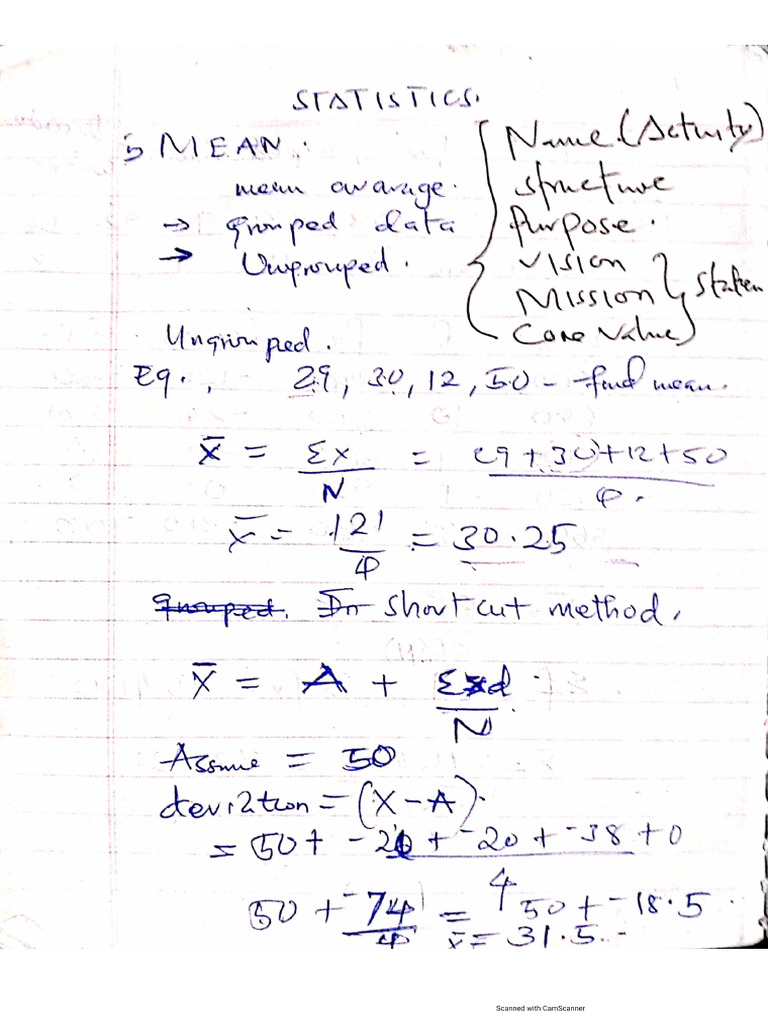 STATISTICS.
MEAN.
mean avarage.
→ grouped data
→ Ungrouped.
Name (Activity)
structure
Purpose.
VISION
MISSION
Core Values
Ungrouped.
Eg., 29, 30, 12, 50 - find mean.
x̄ = Σx / N = 29+30+12+50 / 4.
x̄ = 121 / 4 = 30.25
grouped. In shortcut method.
x̄ = A + Σd / N.
Assume = 50
deviation = (x-A).
= 50+ -20 + -20 + -38 + 0 / 4
50 + -74 / 4 = 50 + -18.5
x̄ = 31.5.
Scanned with CamScanner